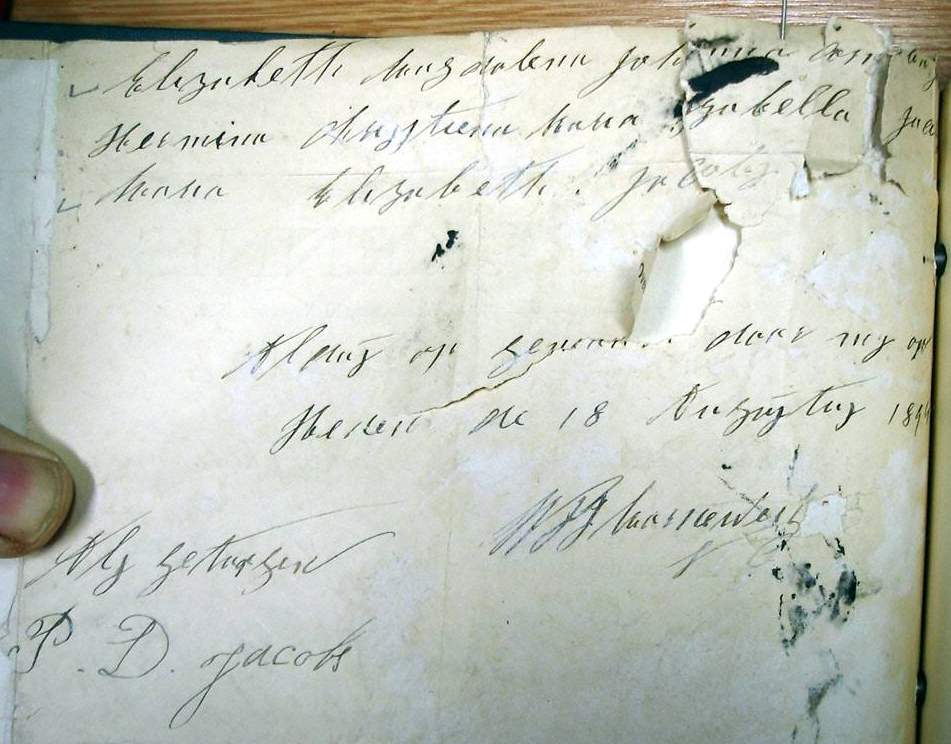 Elizabeth Magdalena Joh
Hermina Chrystiena Maria Izabella Jac
Maria Elizabeth Jacobz
Aldus op genomen door my op
Heden de 18 Augustus 18
Als getuigen
P. D. Jacobs